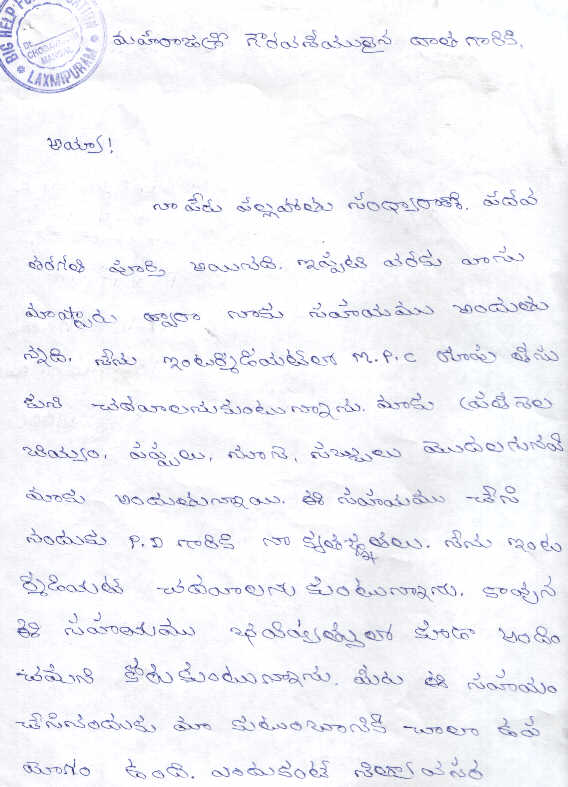 BIG HELP FOR
LAXMIPURAM
మహారాజశ్రీ గౌరవనీయులైన దాత గారికి,
అయ్యా!
నా పేరు పల్లపోతు సంధ్యారాణి. పదవ
తరగతి పూర్తి అయినది. ఇప్పటి వరకు వాసు
మాష్టారు ద్వారా నాకు సహాయము అందుతు
న్నది. నేను ఇంటర్మీడియట్‌లో M.P.C గ్రూపు తీసు
కుని చదవాలనుకుంటున్నాను. మాకు ప్రతినెల
బియ్యం, పప్పులు, నూనె, సబ్బులు మొదలగునవి
మాకు అందుతున్నాయి. ఈ సహాయము చేసి
నందుకు P.D గారికి నా కృతజ్ఞతలు. నేను ఇంట
ర్మీడియట్ చదవాలను కుంటున్నాను. కావున
ఈ సహాయము భవిష్యత్తులో కూడా అందిం
చమని కోరుకుంటున్నాను. మీరు ఈ సహాయం
చేసినందుకు మా కుటుంబానికి చాలా ఉప
యోగం ఉంది. ఎందుకంటే నిత్యావసర